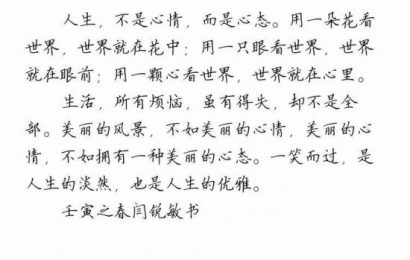 人生，不是心情，而是心态。用一朵花看
世界，世界就在花中；用一只眼看世界，世界
就在眼前；用一颗心看世界，世界就在心里。
生活，所有烦恼，虽有得失，却不是全
部。美丽的风景，不如美丽的心情，美丽的心
情，不如拥有一种美丽的心态。一笑而过，是
人生的淡然，也是人生的优雅。
壬寅之春闫锐敏书